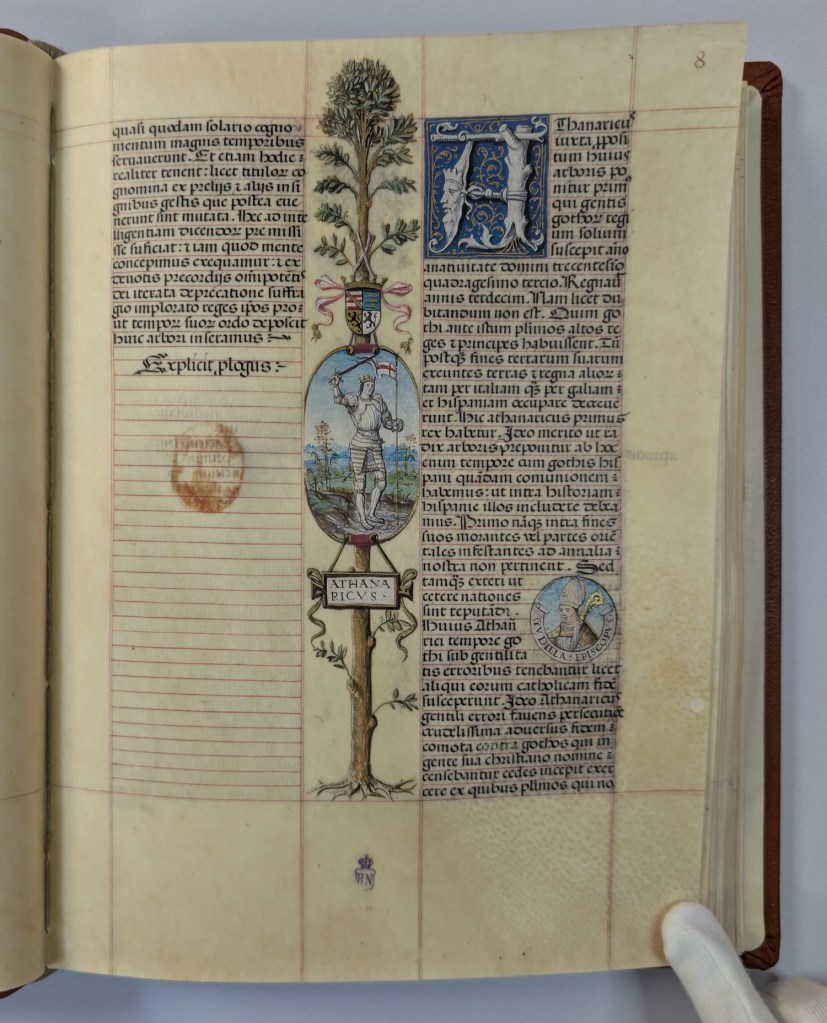 8
quasi quodam solario cogno
mentum magnis temporibus
servauerunt. Et etiam hodie
realiter tenent: licet titulor co
gnomina ex prelijs & alijs insi
gnibus gestis que postea eue
nerunt sint mutata. Hec ad inte
lligentiam dicendor pre missi
sse suficiat: & iam quod mente
concepimus exequamur: & ex
deuotis precordijs omīpotēti
dei iterata deprecatione suffra
gio implorato reges ipos pro
ut tempor suor ordo deposcit
huic arbori inseramus:~
Explicit plogus:~
ATHANA
RICVS
AThanaricus
iuxta pposi
tum huius
arboris po
nitur prim
qui gentis
gothor regi
um solium
suscepit año
anatiuitate domini trecentesio
quadragesimo tercio. Regnauit
annis terdecim. Nam licet du
bitandum non est. Quim go
thi ante istum plimos altos re
ges & principes habuissent. Tñ
postq̃ fines terrarum suarum
exeuntes terras & regna alior
tam per italiam q̃ per galiam
et hispaniam occupare decreue
runt. Hic athanaricus primus
rex habetur. Ideo merito ut ra
dix arboris preponitur ab hoc
enim tempore cum gothis his
pani quādam comunionem
habemus: ut intra historiam
hispanie illos includere debea
mus. Primo nāq̃ intra fines
suos morantes vel partes oriē
tales infestantes ad annalia
nostra non pertinent. Sed
tamq̃ exteri ut
cetere nationes
sint reputādi.
Huius Athañ
rici tempore go
thi sub gentilita
tis erroribus tenebantur licet
aliqui eorum catholicam fidē
susceperunt. Ideo Athanaricus
gentili errori fauens persecutiōe
crudelissima aduersus fidem
comota contra gothos qui in
gente sua christiano nomine
censebantur cedes incepit exer
cere ex quibus plimos qui no
GVDILLA EPISCOPVS
BN